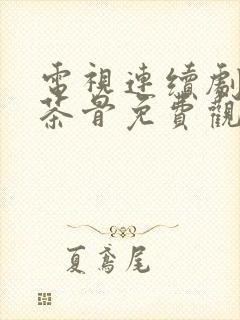 電視連續劇
茶骨免費觀
夏鳶尾